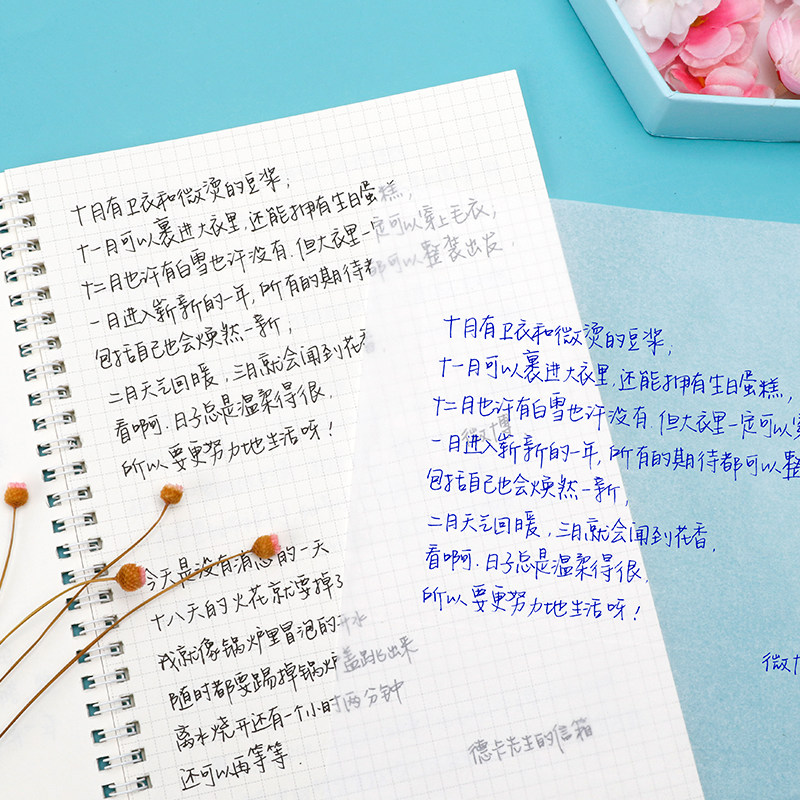 十月有卫衣和微烫的豆浆,
十一月可以裹进大衣里,还能拥有生日蛋糕,
十二月也许有白雪也许没有.但大衣里一定可以穿上毛衣,
一月进入崭新的一年,所有的期待都可以整装出发.
包括自己也会焕然一新,
二月天气回暖,三月就会闻到花香
看啊.日子总是温柔得很.
所以要更努力地生活呀!
微博
今天是没有消息的一天
十八天的火花就要掉了
我就像锅炉里冒泡的开水
随时都要踢掉锅炉盖跳出来
离水烧开还有一个小时两分钟
还可以再等等.
德卡先生的信箱
十月有卫衣和微烫的豆浆,
十一月可以裹进大衣里,还能拥有生日蛋糕,
十二月也许有白雪也许没有.但大衣里一定可以穿
一月进入崭新的一年,所有的期待都可以整
包括自己也会焕然一新,
二月天气回暖,三月就会闻到花香.
看啊.日子总是温柔得很.
所以要更努力地生活呀!
微